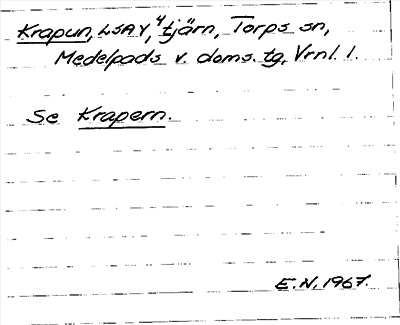 Krapun, LSAY, 4 tjärn, Torps sn,
Medelpads v. doms. tg, Vrnl. l.
Se Krapern.
E.N. 1967.